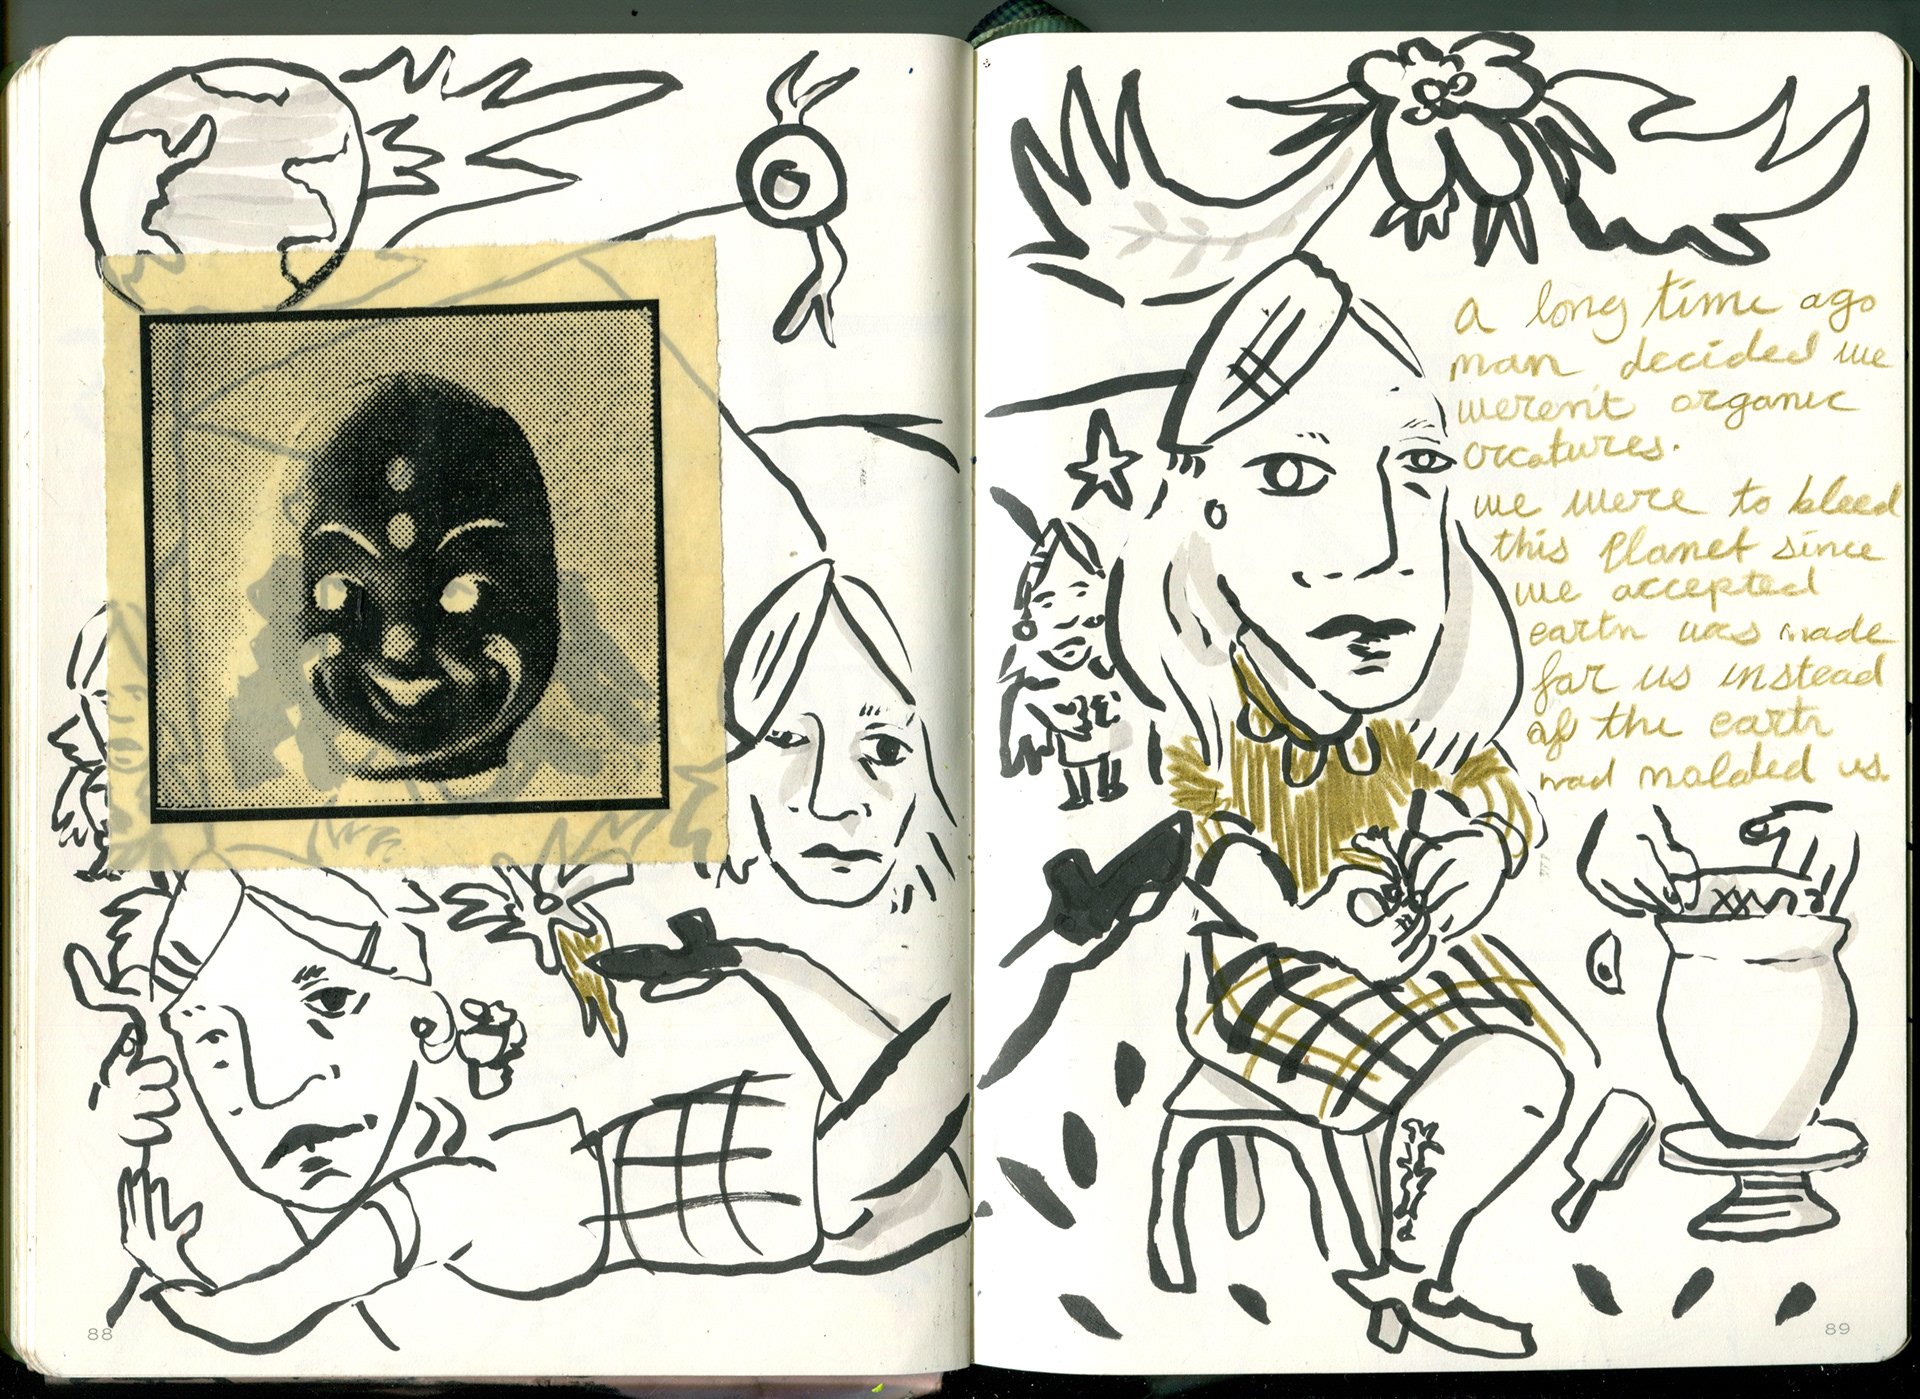 a long time ago
man decided we
weren't organic
creatures.
we were to bleed
this planet since
we accepted
earth was made
for us instead
of the earth
had molded us.
88
89